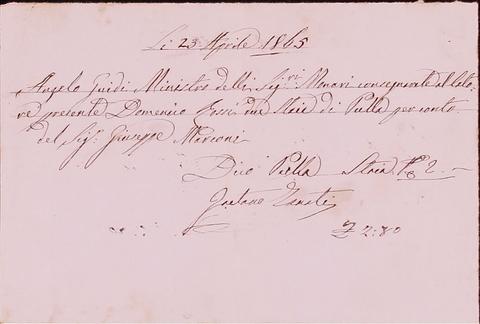 Li 23 Aprile 1865
Angelo Guidi Ministro delli Sig.ri Monari consegnerete al lato-
re presente Domenico Rossi due Staia di Pulla per conto
del Sig.r Giuseppe Marconi
Dico Pulla Staia N° 2. —
Gaetano
£ 2:80